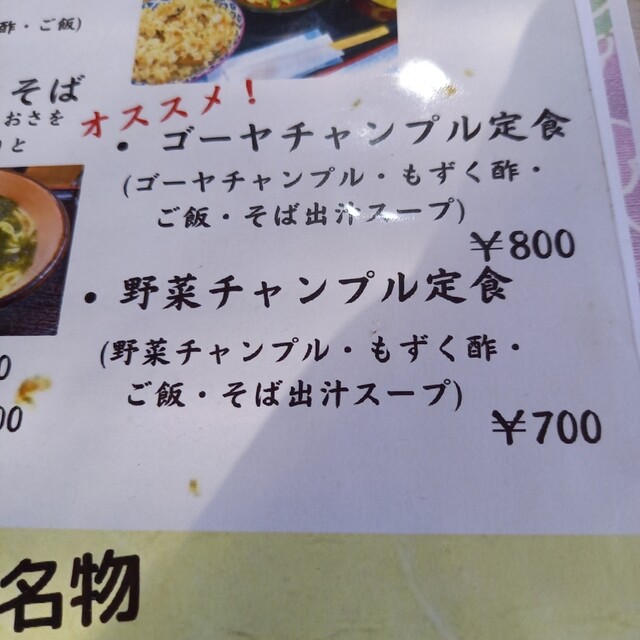 酢・ご飯)
そば
おさを
と
オススメ！
・ゴーヤチャンプル定食
(ゴーヤチャンプル・もずく酢・
ご飯・そば出汁スープ)
￥800
・野菜チャンプル定食
(野菜チャンプル・もずく酢・
ご飯・そば出汁スープ)
￥700
0
00
名物